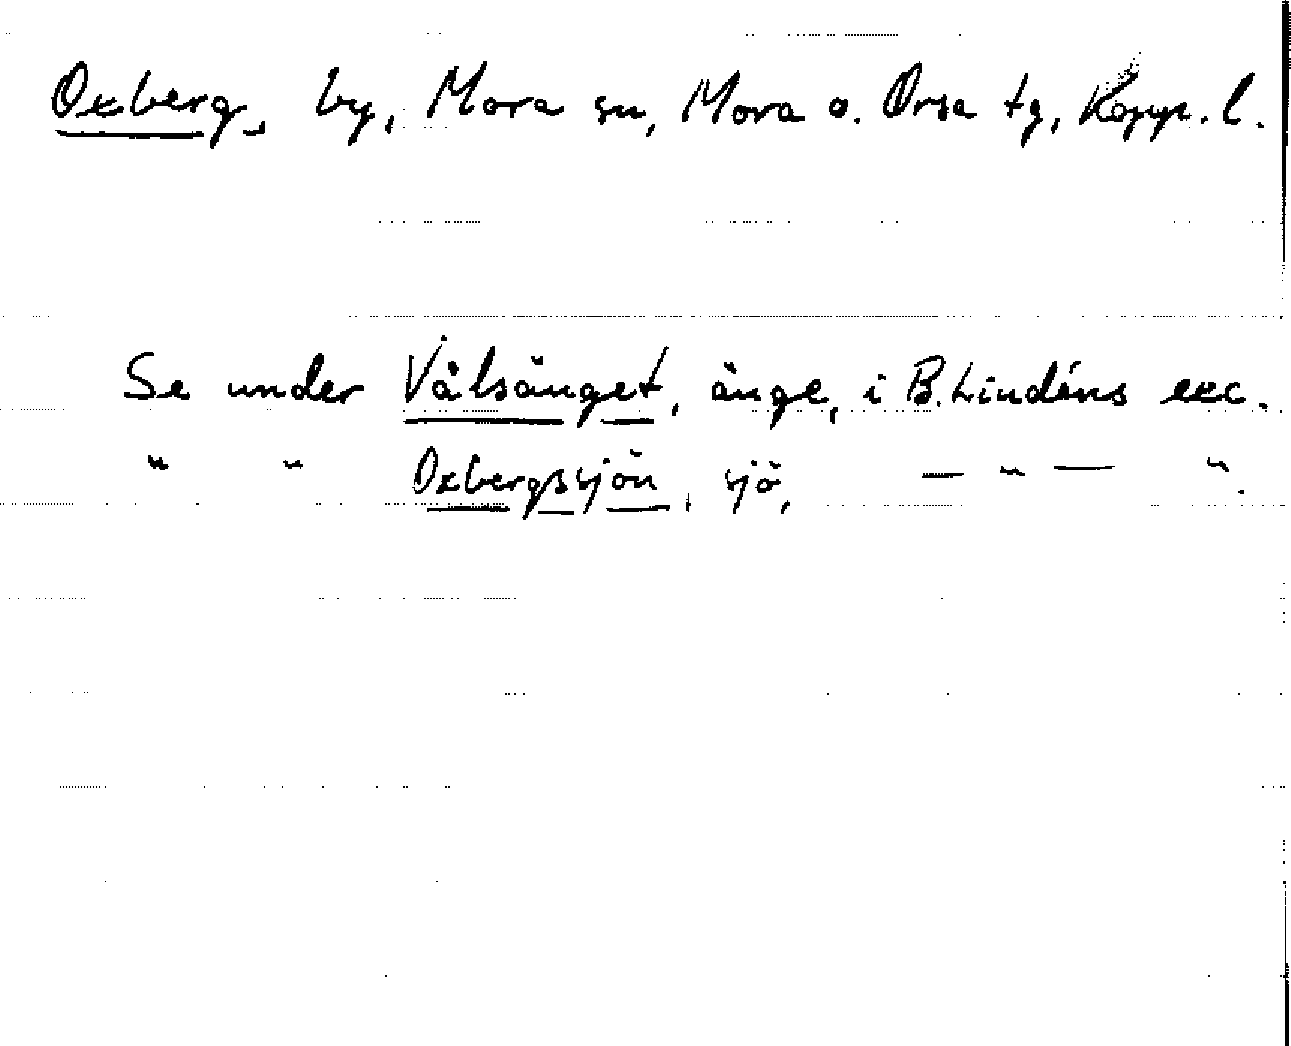 Oxberg, by, Mora sn, Mora o. Orsa tg, Kopp. l.
Se under Vålsänget, änge, i B. Lindéns exc.
" " Oxbergssjön, sjö, — " — "